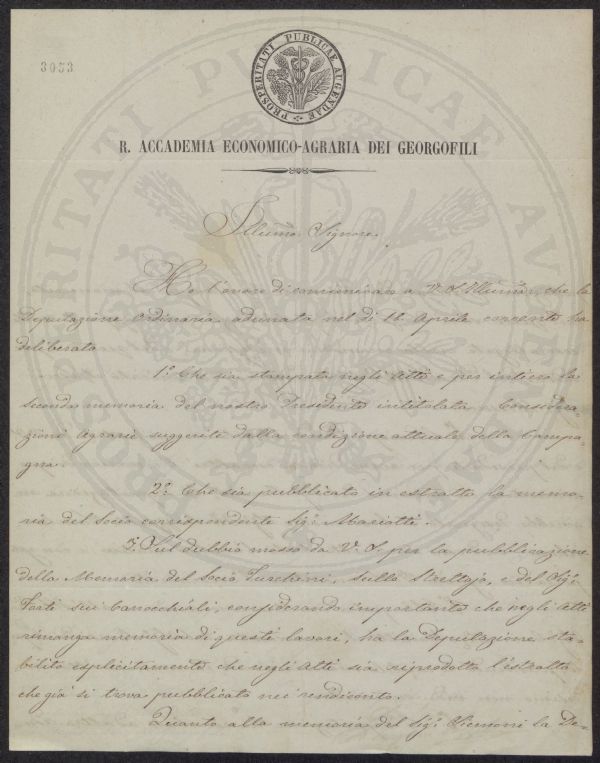 3053
PROSPERITATI PUBLICAE AUGENDAE
R. ACCADEMIA ECONOMICO-AGRARIA DEI GEORGOFILI
Illumo Signore
Ho l'onore di comunicare a V. S. Illuma che la
Deputazione Ordinaria adunata nel dì 16 Aprile corrente ha
deliberato
1.º Che sia stampata negli Atti e per intiero la
seconda memoria del nostro Presidente intitolata Considera-
zioni Agrarie suggerite dalla condizione attuale della Campa-
gna.
2.º Che sia pubblicata in estratto la memo-
ria del Socio corrispondente Sig.r Mariotti.
3. Sul dubbio mosso da V. S. per la pubblicazione
della Memoria del Socio Turchini, sullo Strettojo, e del Sig.r
Forti sui Canocchiali, considerando importante che negli Atti
rimanga memoria di questi lavori, ha la Deputazione sta-
bilito esplicitamente che negli Atti sia riprodotto l'estratto
che già si trova pubblicato nei rendiconti.
Quanto alla memoria del Sig.r Siemoni la De-